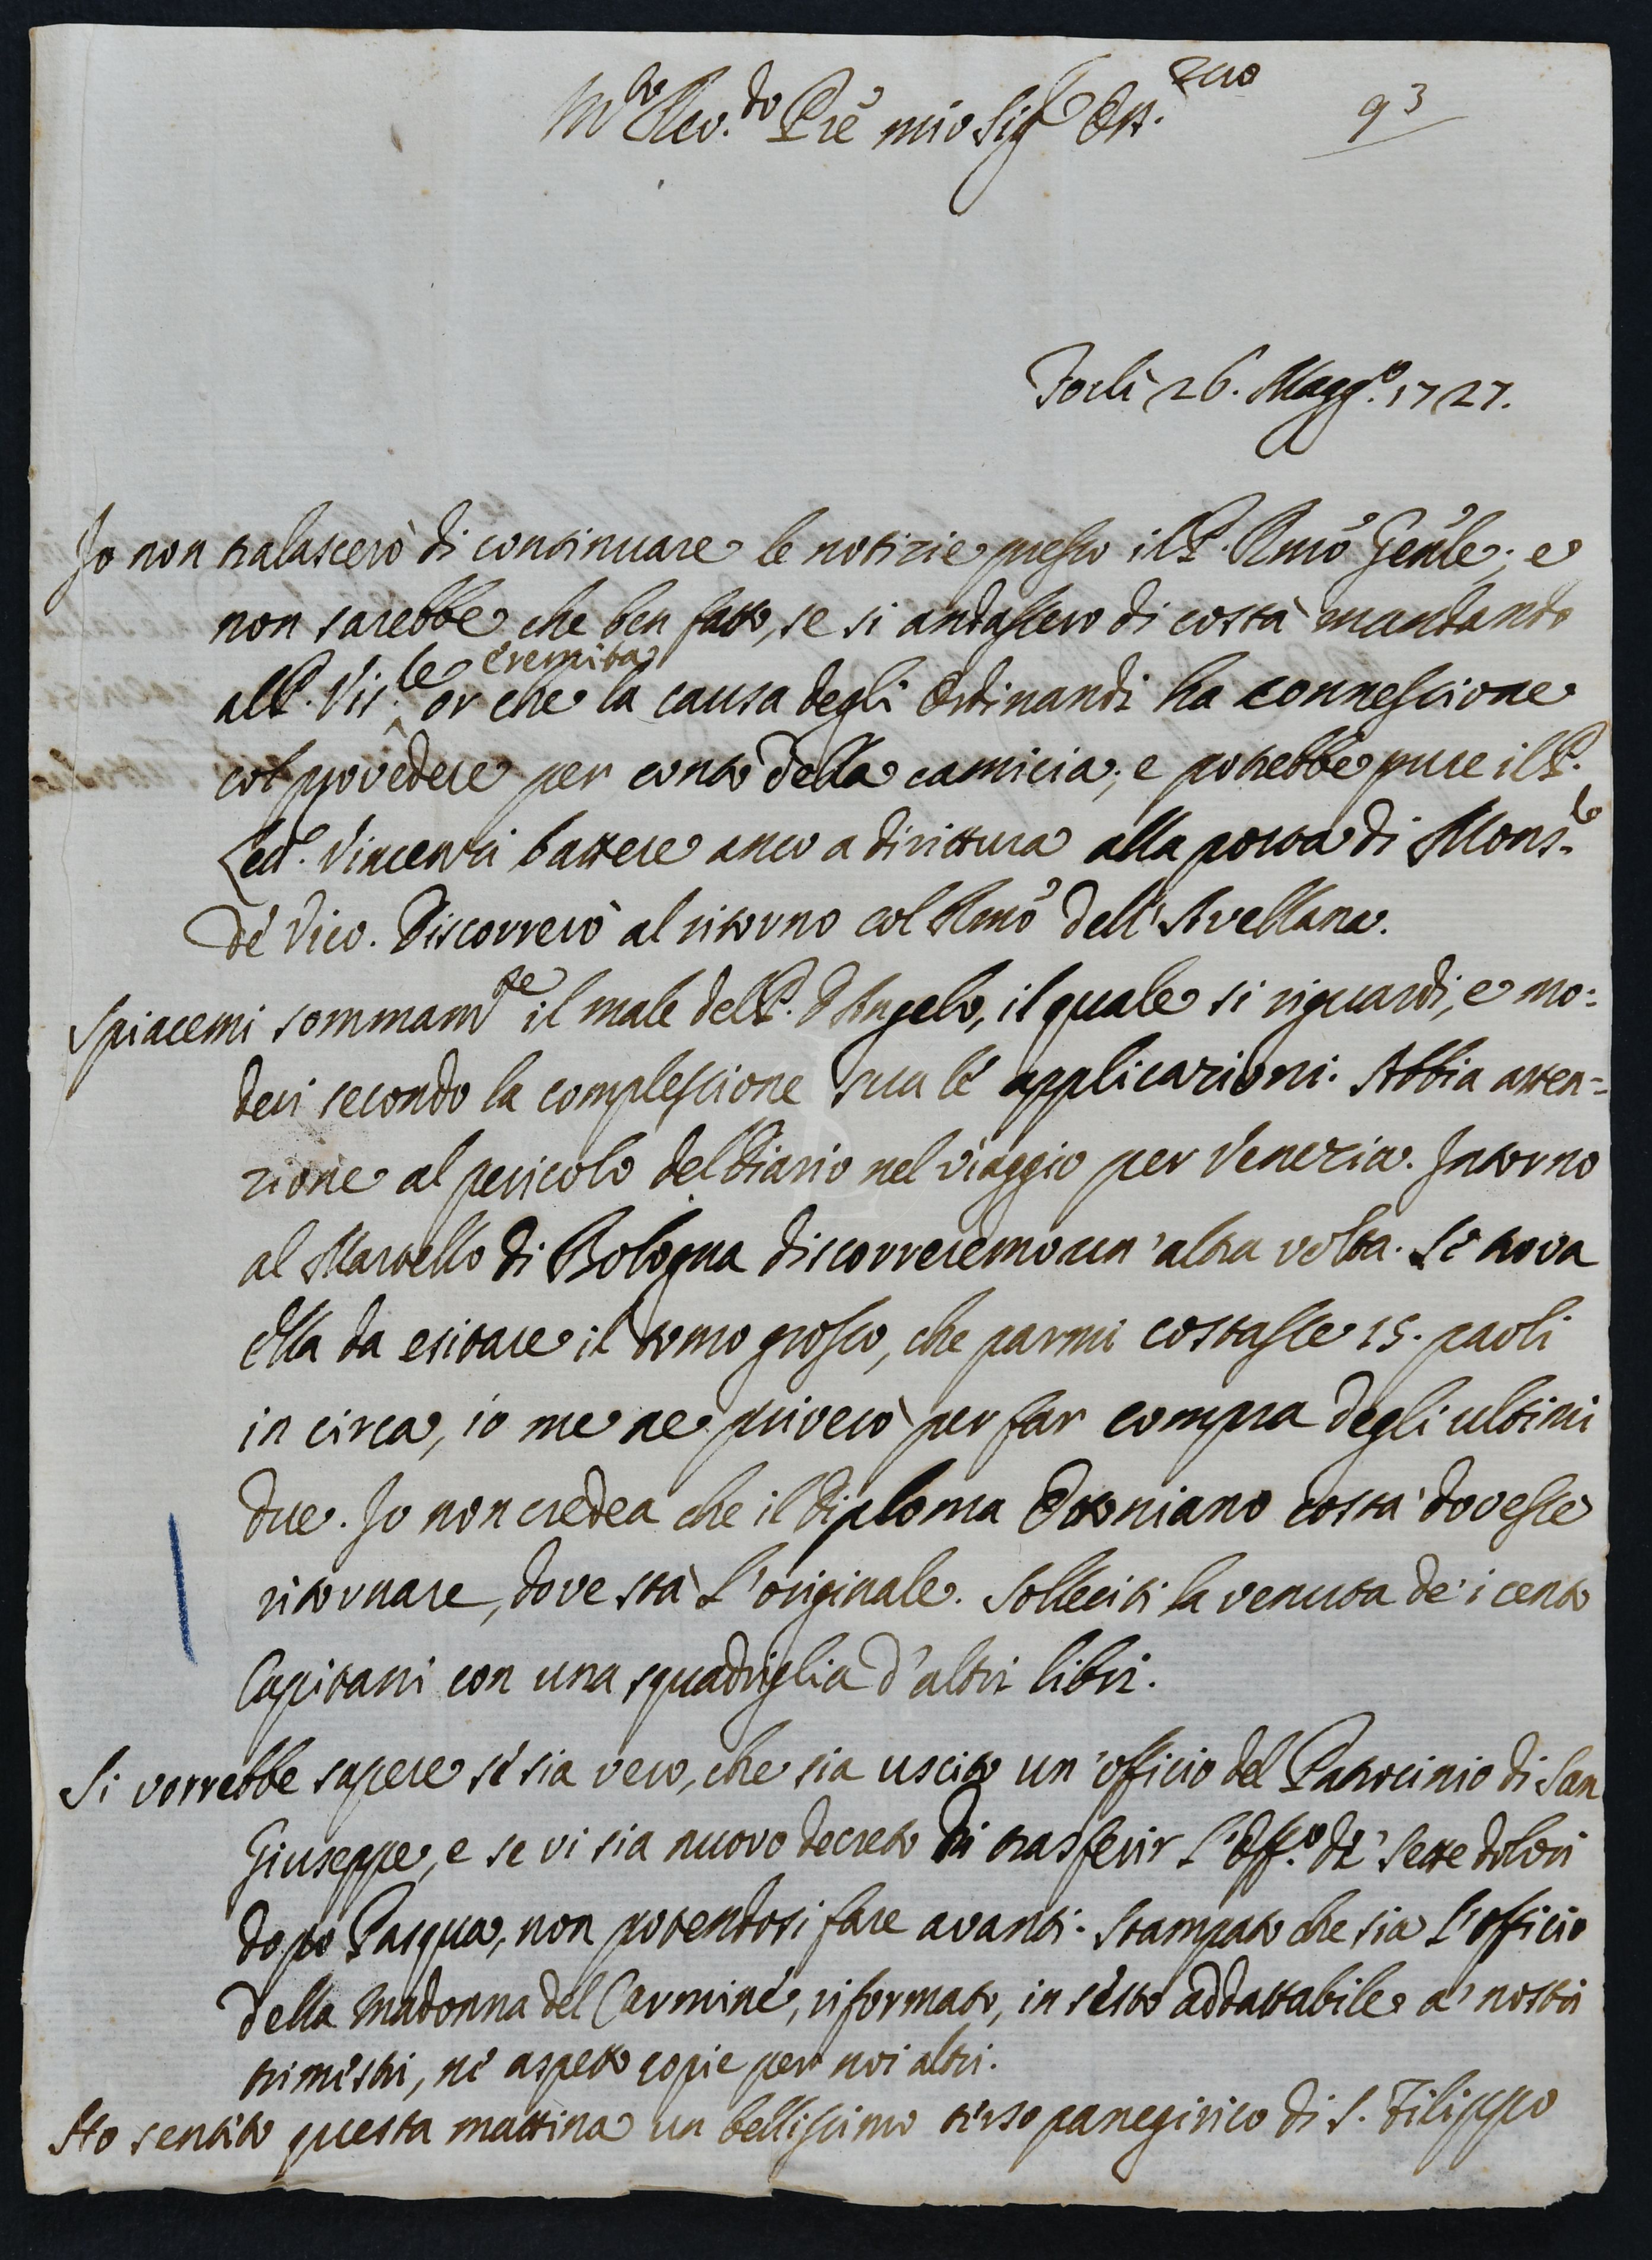 M.to Rev.do Pre mio Sig.r Oss.mo
93
Forlì 26. Magg.o 1727.
Jo non tralascerò di continuare le notizie presso il P. Rmo Genle; e
non sarebbe che ben fatto, se si andassero di costà mandando
al P. Vis.le eremita or che la causa degli Ordinandi ha connessione
col provedere per conto della camicia; e potrebbe pure il P.
Lett. Vincenzi battere anco a dirittura alla porta di Mons.
de Vico. Discorrerò al ritorno col Rmo dell'Avellana.
Spiacemi sommam.te il male del P. D'Angelo, il quale si riguardi, e mo=
deri secondo la complessione sua le applicazioni. Abbia atten=
zione al pericolo del Diario nel viaggio per Venezia. Intorno
al Martello di Bologna discorreremo un'altra volta. Se trova
Ella da esitare il tomo grosso, che parmi costasse 15. paoli
in circa, io me ne priverò per far compra degli ultimi
due. Jo non credea che il Diploma Ottoniano costà dovesse
ritornare, dove stà l'originale. Solleciti la venuta de' i cento
Capitani con una squadriglia d'altri libri.
Si vorrebbe sapere se sia vero, che sia uscito un'officio del Patrocinio di San
Giuseppe, e se vi sia nuovo decreto di trasferir l'Off.o de' sette dolori
dopo Pasqua, non potendosi fare avanti. Stampato che sia l'officio
della Madonna del Carmine, riformato, in sesto addattabile a' nostri
trimestri, ne aspetto copie per noi altri.
Ho sentito questa mattina un bellissimo terso panegirico di S. Filippo